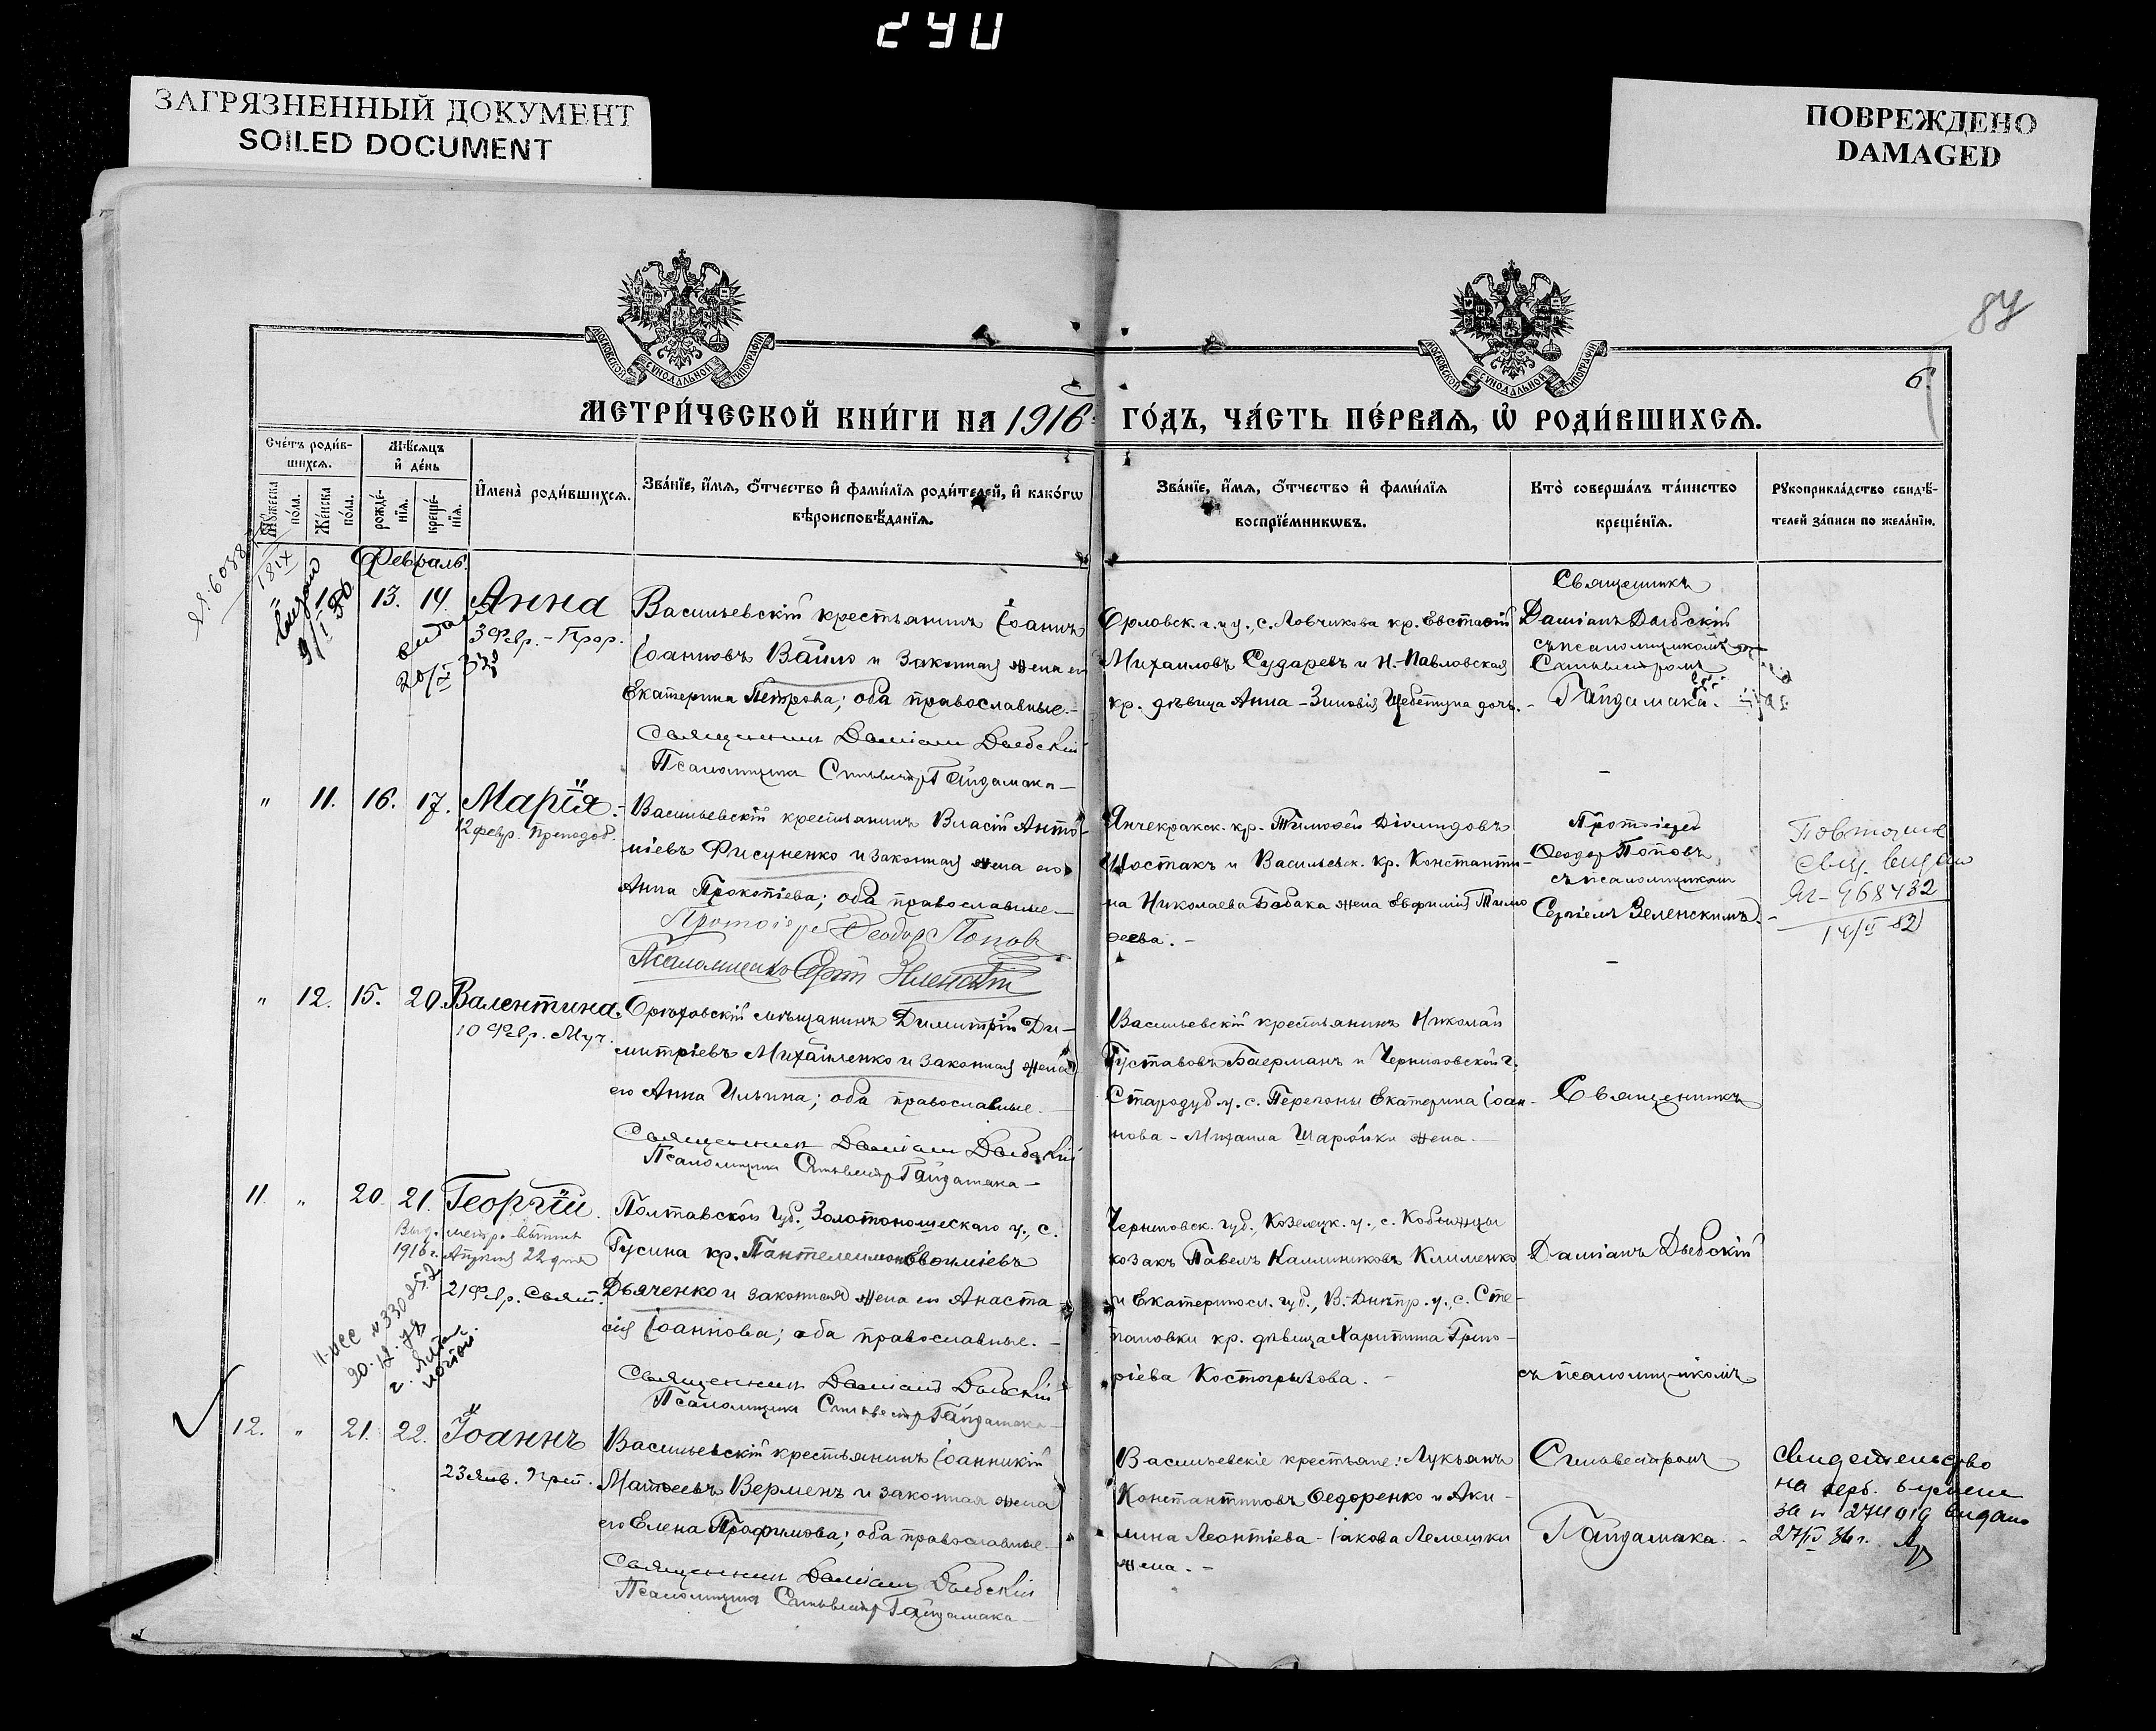 290
ЗАГРЯЗНЕННЫЙ ДОКУМЕНТ
SOILED DOCUMENT
ПОВРЕЖДЕНО
DAMAGED
МОСКОВСКОЙ СИНОДАЛЬНОЙ ТИПОГРАФІИ
МОСКОВСКОЙ СИНОДАЛЬНОЙ ТИПОГРАФІИ
6.
МЕТРИ́ЧЕСКОЙ КНИ́ГИ НА 1916 ГО́ДЪ, ЧА́СТЬ ПЕ́РВАѦ, Ѡ҆ РОДИ́ВШИХСѦ.
Сче́тъ роди́в-
шихсѧ.
Мѣсѧцъ
и҆ де́нь
Мꙋжеска
по́ла.
Же́нска
по́ла.
рожде́-
нїѧ.
креще́-
нїѧ.
И҆мена̀ роди́вшихсѧ.
Зва́нїе, и҆́мѧ, ѻ҆́тчество и҆ фами́лїѧ роди́телей, и҆ како́гѡ
вѣроисповѣ́данїѧ.
Зва́нїе, и҆́мѧ, ѻ҆́тчество и҆ фами́лїѧ
воспрїе́мникѡвъ.
Кто̀ соверша́лъ та́инство
креще́нїѧ.
Рꙋкоприкла́дство свидѣ́-
телей за́писи по жела́нїю.
Февраль.
" 10 13. 14. Анна
3 Февр. - Прор.
Васильевскій крестьянинъ Іоаннъ
Іоанновъ Вайло и законная жена его
Екатерина Петрова; оба православные.-
Священник Дамиан Дыбский
Псаломщик Сильвестр Гайдамака-
Орловск. г. и у., с. Ловчикова кр. Евстафій
Михаиловъ Сударевъ и Н.-Павловская
кр. дѣвица Анна - Зиновія Щебетуна дочь.-
Священникъ
Даміанъ Дыбскій
съ псаломщикомъ
Сильвестромъ
Гайдамака.
" 11. 16. 17. Марія.
12 февр. Преподоб.
Васильевскій крестьянинъ Власій Анто-
ніевъ Фисуненко и законная жена его
Анна Прокопіева; оба православные-
Протоіерей Феодор Попов
Псаломщикъ Сергій Зеленскій
Янчекракск. кр. Тимофей Діомидовъ
Шостакъ и Васильевск. кр. Константи-
на Николаева Бабака жена Евфимія Тимо
феева.-
Протоіерей
Феодор Поповъ
съ псаломщикомъ
Сергіемъ Зеленскимъ.-
Повторне
свід. видано
468432
14/II 82
" 12. 15. 20. Валентина.
10 Февр. Муч.
Орѣховскій мѣщанинъ Димитрій Ди-
митріевъ Михайленко и законная жена
его Анна Ильина; оба православные.-
Священник Дамиан Дыбский
Псаломщик Сильвестр Гайдамака-
Васильевскій крестьянинъ Николай
Густавовъ Баерманъ и Черниговской г.
Стародуб. у. с. Перегоны Екатерина Іоан-
нова - Михаила Шаройки жена.-
Священникъ
11. " 20. 21. Георгій.
Выд. метр. выпись
1916 г. Апрѣля 22 дня
21 Февр. Свят.
Полтавской губ., Золотоношескаго у., с.
Гусина кр. Пантелеимонъ Евфиміевъ
Дьяченко и законная жена его Анаста-
сія Іоаннова; оба православные.-
Священник Дамиан Дыбский
Псаломщик Сильвестр Гайдамака-
Черниговск. губ., Козелецк. у., с. Кобыжчи
козакъ Павелъ Каллиниковъ Клименко
и Екатериносл. губ., В.-Днѣпр. у., с. Сте-
пановки кр. дѣвица Харитина Григо-
ріева Костогрызова.-
Даміанъ Дыбскій
съ псаломщикомъ
12. " 21. 22. Іоаннъ
23 Янв. Преп.
Васильевскій крестьянинъ Іоанникій
Матѳеевъ Верменъ и законная жена
его Елена Трофимова; оба православные.-
Священник Дамиан Дыбский
Псаломщик Сильвестр Гайдамака-
Васильевскіе крестьяне: Лукьянъ
Константиновъ Ѳедоренко и Аки-
лина Леонтіева - Іакова Лемешки
жена.-
Сильвестромъ
Гайдамака.-
Свидетельство
на герб. бумаге
за № 274019 видано
27/IV 36 г.